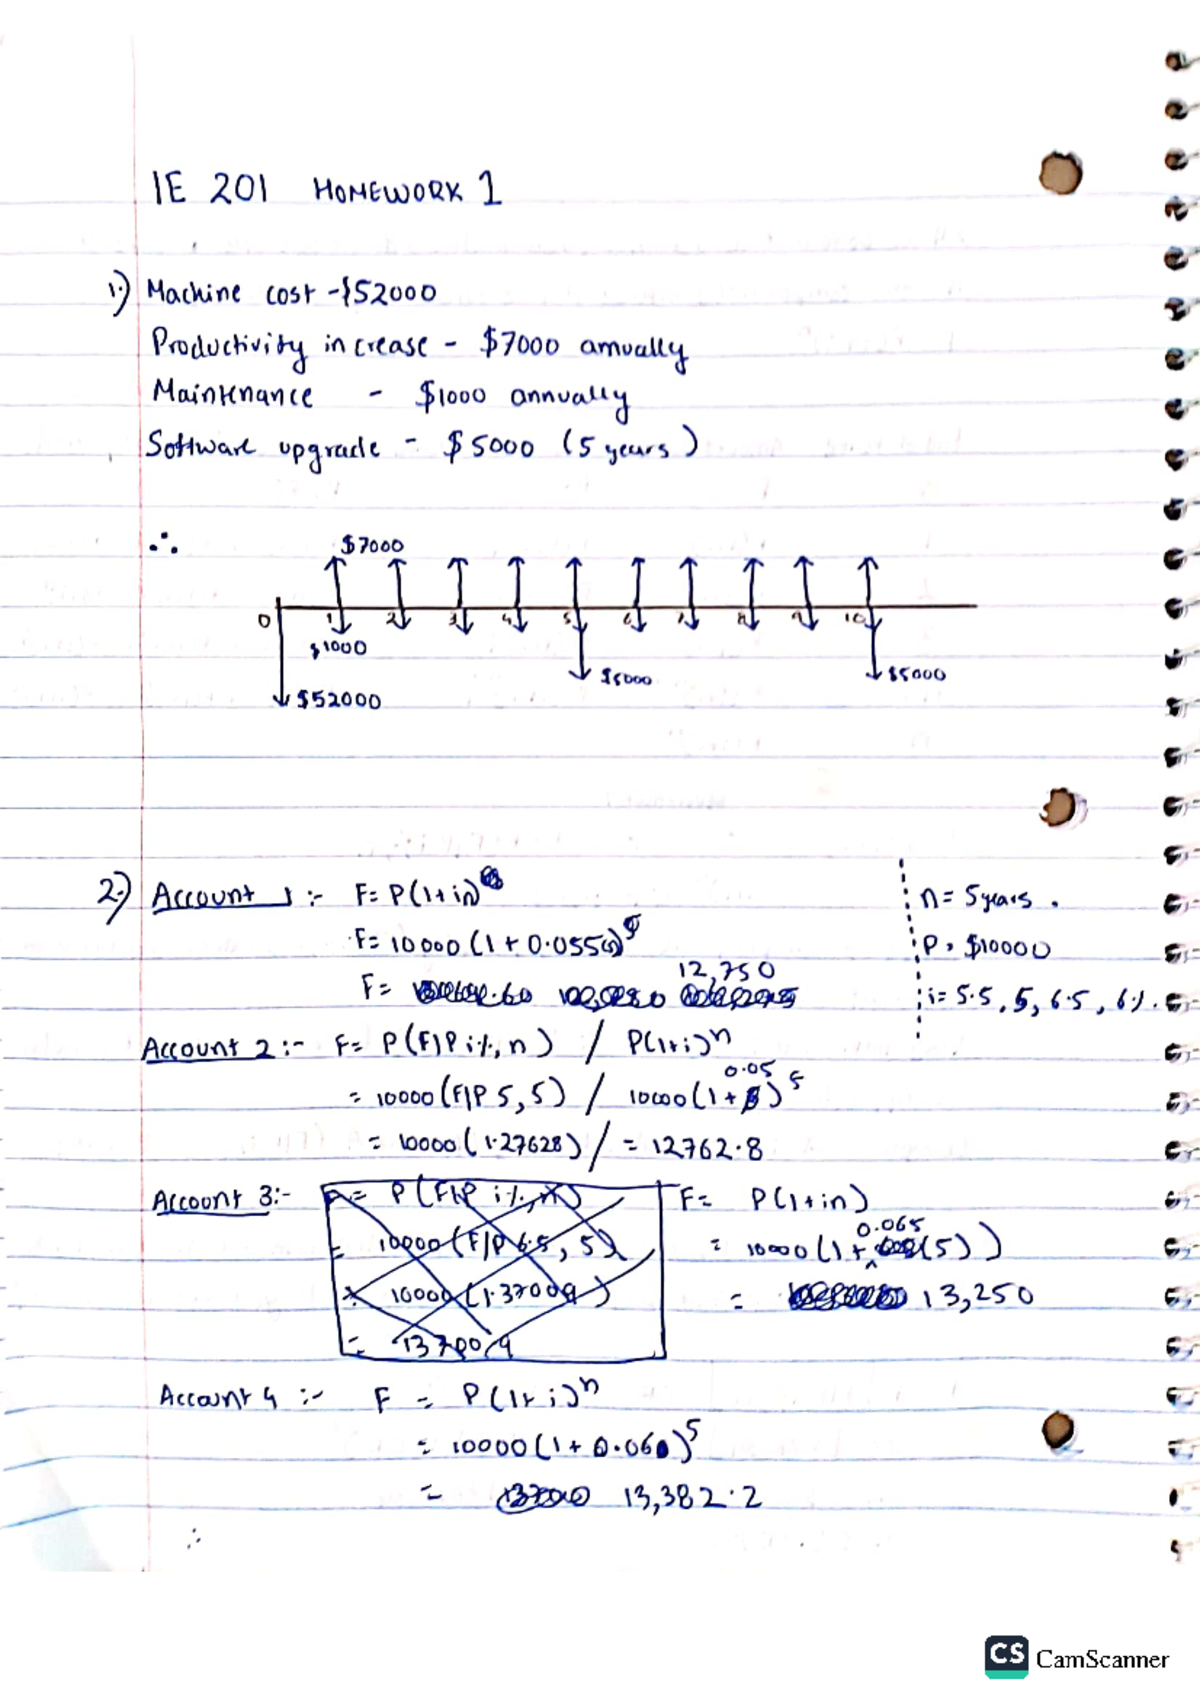 IE 201 HOMEWORK 1
1.) Machine cost - $52000
Productivity increase - $7000 annually
Maintenance - $1000 annually
Software upgrade - $5000 (5 years)
∴ $7000
0 1 2 3 4 5 6 7 8 9 10
$1000
$5000 $5000
$52000
2.) Account 1 :- F= P(1+in)
n= 5 years .
F= 10000 (1+ 0.055(5))
P = $10000
F= 12,750
i= 5.5, 5, 6.5, 6%.
Account 2 :- F= P(F|P i%, n) / P(1+i)^n
= 10000 (F|P 5, 5) / 10000 (1+ 0.05)^5
= 10000 (1.27628) / = 12762.8
Account 3:- F= P(F|P i%, n) F= P(1+in)
= 10000 (F/P 6.5, 5) = 10000 (1+ 0.065(5))
= 10000 (1.37009) = 13,250
= 13700.9
Account 4 :- F = P(1+i)^n
= 10000 (1+ 0.060)^5
= 13,382.2
∴
CS CamScanner